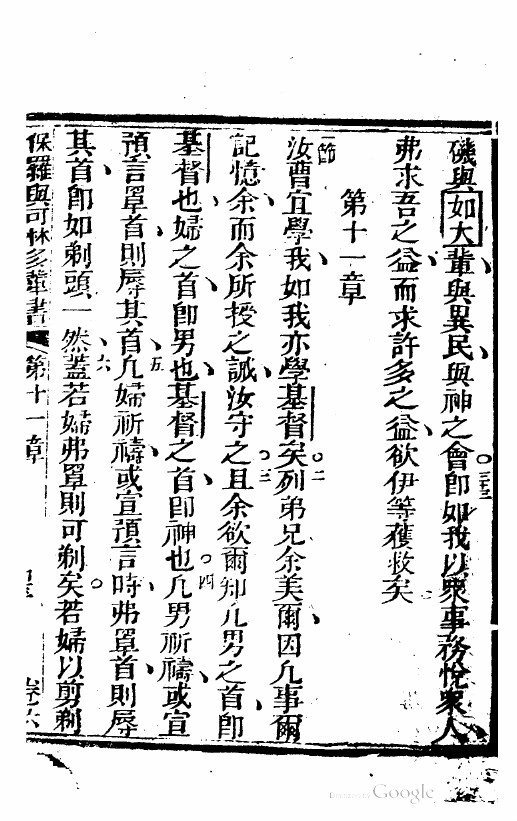 礙與如大輩與異民與神之會三三即如我以衆事務悅衆人
弗求吾之益而求許多之益欲伊等獲救矣
第十一章
一節汝曹宜學我如我亦學基督矣二列弟兄余美爾因凡事爾
記憶余而余所授之誡汝守之三且余欲爾知凡男之首即
基督也婦之首即男也基督之首即神也四凡男祈禱或宣
預言罩首則辱其首五凡婦祈禱或宣預言時弗罩首則辱
其首即如剃頭一然六蓋若婦弗罩則可剃矣若婦以剪剃
保羅與可林多輩書 第十一章 卷六
Digitized by Google